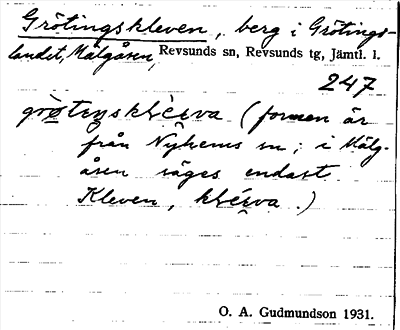 Grötingskleven, berg i Grötings-
landet, Mälgåsen, Revsunds sn, Revsunds tg, Jämtl. l.
247
(formen är
från Nyhems sn; i Mälg-
åsen säges endast
Kleven, .)
O. A. Gudmundson 1931.